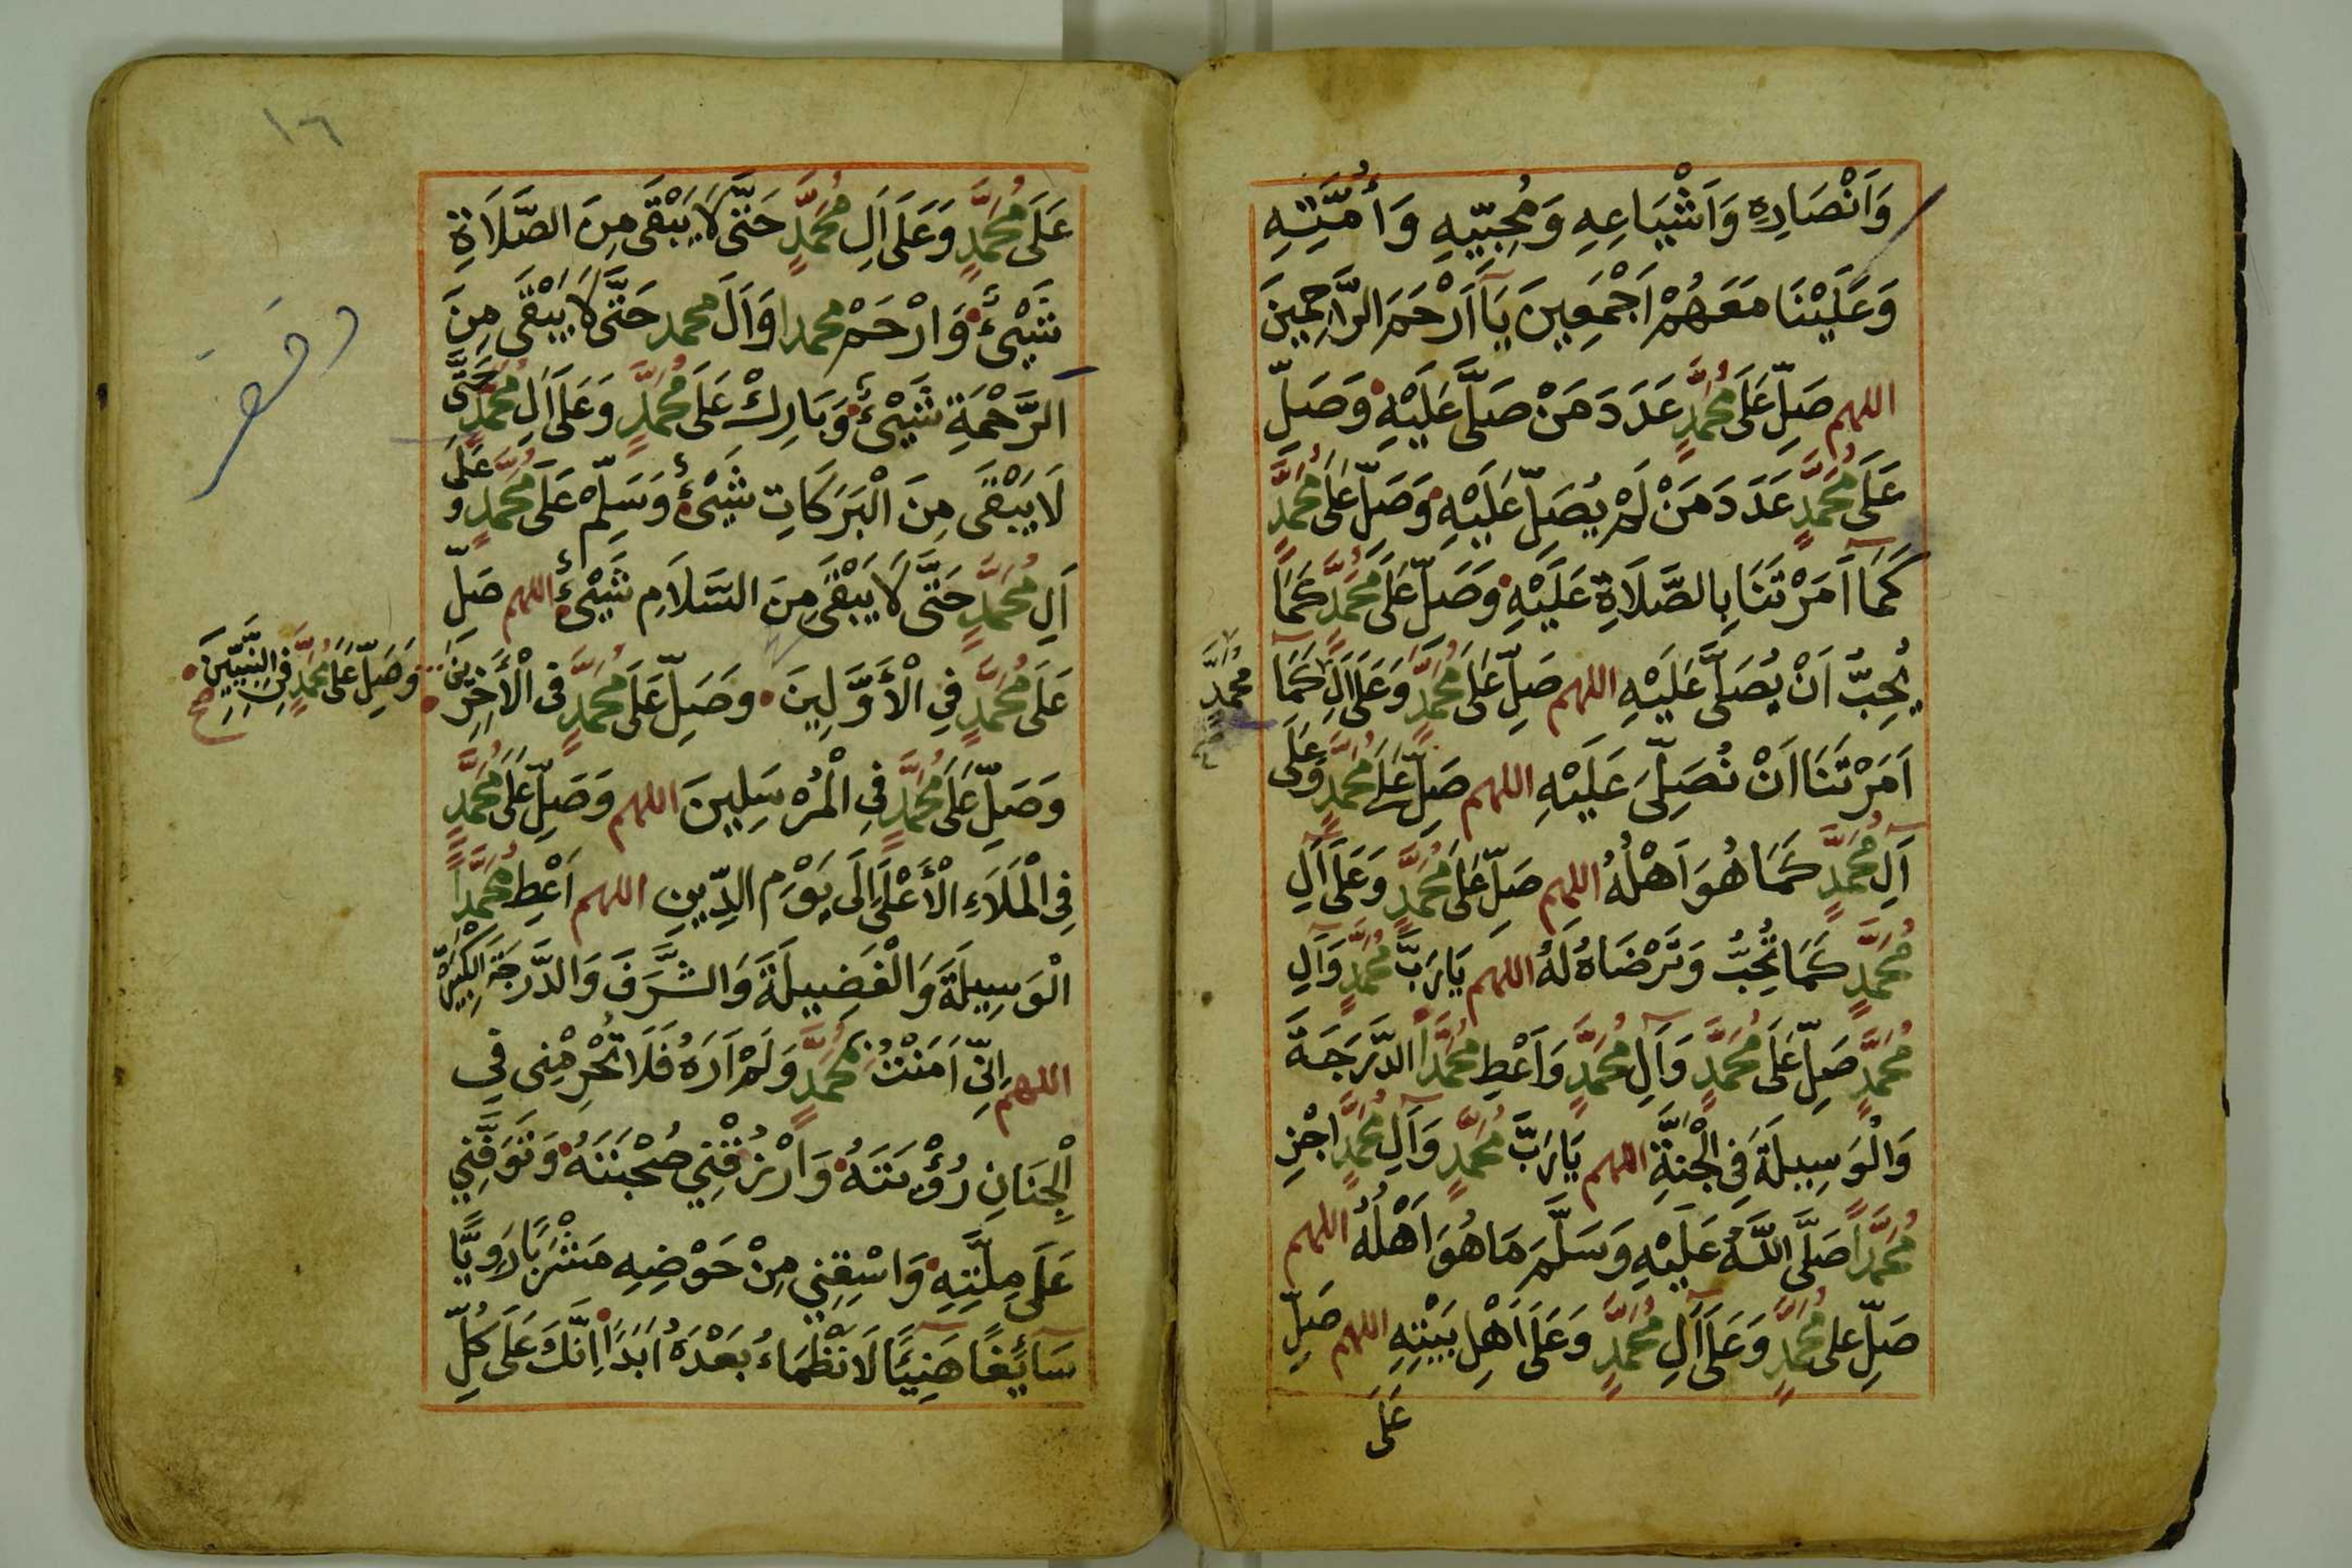 وَاَنْصَارِهِ وَاَشْيَاعِهِ وَمُحِبِّيهِ وَأُمَّتِهِ
وَعَلَيْنَا مَعَهُمْ اَجْمَعِينَ يَآ اَرْحَمَ الرَّاحِمِينَ
اللهم صَلِّ عَلَى مُحَمَّدٍ عَدَدَ مَنْ صَلَّى عَلَيْهِ وَصَلِّ
عَلَى مُحَمَّدٍ عَدَدَ مَنْ لَمْ يُصَلِّ عَلَيْهِ وَصَلِّ عَلَى مُحَمَّدٍ
كَمَآ اَمَرْتَنَا بِالصَّلَاةِ عَلَيْهِ وَصَلِّ عَلَى مُحَمَّدٍ كَمَا
يُحِبُّ اَنْ يُصَلَّى عَلَيْهِ اللهم صَلِّ عَلَى مُحَمَّدٍ وَعَلَى اَلِ كَمَآ
مُحَمَّدٍ
اَمَرْتَنَا اَنْ نُصَلِّىَ عَلَيْهِ اللهم صَلِّ عَلَى مُحَمَّدٍ وَعَلَى
اَلِ مُحَمَّدٍ كَمَا هُوَ اَهْلُهُ اللهم صَلِّ عَلَى مُحَمَّدٍ وَعَلَى آلِ
مُحَمَّدٍ كَمَا تُحِبُّ وَتَرْضَاهُ لَهُ اللهم يَا رَبَّ مُحَمَّدٍ وَآلِ
مُحَمَّدٍ صَلِّ عَلَى مُحَمَّدٍ وَآلِ مُحَمَّدٍ وَاَعْطِ مُحَمَّدًا الدَّرَجَةَ
وَالْوَسِيلَةَ فِى الْجَنَّةِ اللهم يَا رَبَّ مُحَمَّدٍ وَآلِ مُحَمَّدٍ اجْزِ
مُحَمَّدًا صَلَّى اللَّهُ عَلَيْهِ وَسَلَّمَ مَا هُوَ اَهْلُهُ اللهم
صَلِّ على مُحَمَّدٍ وَعَلَى آلِ مُحَمَّدٍ وَعَلَى اَهْلِ بَيْتِهِ اللهم صَلِّ
عَلَى
١٦
عَلَى مُحَمَّدٍ وَعَلَى اَلِ مُحَمَّدٍ حَتَّى لَا يَبْقَى مِنَ الصَّلَاةِ
شَيْئٌ وَارْحَمْ محمدا وَاَلَ محمد حَتَّى لَا يَبْقَى مِنَ
الرَّحْمَةِ شَيْئٌ وَبَارِكْ عَلَى مُحَمَّدٍ وَعَلَى اَلِ مُحَمَّدٍ حَتَّى
لَا يَبْقَى مِنَ الْبَرَكَاتِ شَيْئٌ وَسَلِّمْ عَلَى مُحَمَّدٍ وَعَلَى
اَلِ مُحَمَّدٍ حَتَّى لَا يَبْقَى مِنَ السَّلَامِ شَيْئٌ اللهم صَلِّ
عَلَى مُحَمَّدٍ فِي الْأَوَّلِينَ وَصَلِّ عَلَى مُحَمَّدٍ فى الْأَخِرِينَ
وَصَلِّ عَلَى مُحَمَّدٍ فِى النَّبِيِّينَ صح
وَصَلِّ عَلَى مُحَمَّدٍ فِى الْمُرْسَلِينَ اللهم وَصَلِّ عَلَى مُحَمَّدٍ
فِى الْمَلَاءِ الْأَعْلَى اِلَى يَوْمِ الدِّينِ اللهم اَعْطِ مُحَمَّدًا
الْوَسِيلَةَ وَالْفَضِيلَةَ وَالشَّرَفَ وَالدَّرَجَةَ الْكَبِيرَةَ
اللهم اِنِّى اَمَنْتُ بِمُحَمَّدٍ وَلَمْ اَرَهُ فَلَا تُحْرِمْنِى فِى
الْجِنَانِ رُؤْيَتَهُ وَارْزُقْنِي صُحْبَتَهُ وَتَوَفَّنِي
عَلَى مِلَّتِهِ وَاسْقِنِي مِنْ حَوْضِهِ مَشْرَبًا رَوِيًّا
سَآئِغًا هَنِئًا لَا نَظْمَاءُ بَعْدَهُ اَبَدًا اِنَّكَ عَلَى كُلِّ